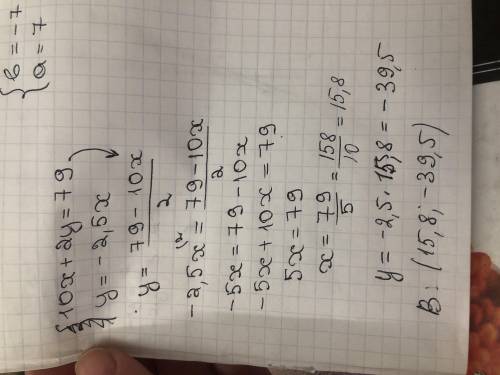 { b = -7
a = 7
{ 10x + 2y = 79
y = -2,5x
y = 79 - 10x / 2
-2,5x = 79 - 10x / 2
-5x = 79 - 10x
-5x + 10x = 79
5x = 79
x = 79/5 = 158/10 = 15,8
y = -2,5 · 15,8 = -39,5
В: (15,8; -39,5)